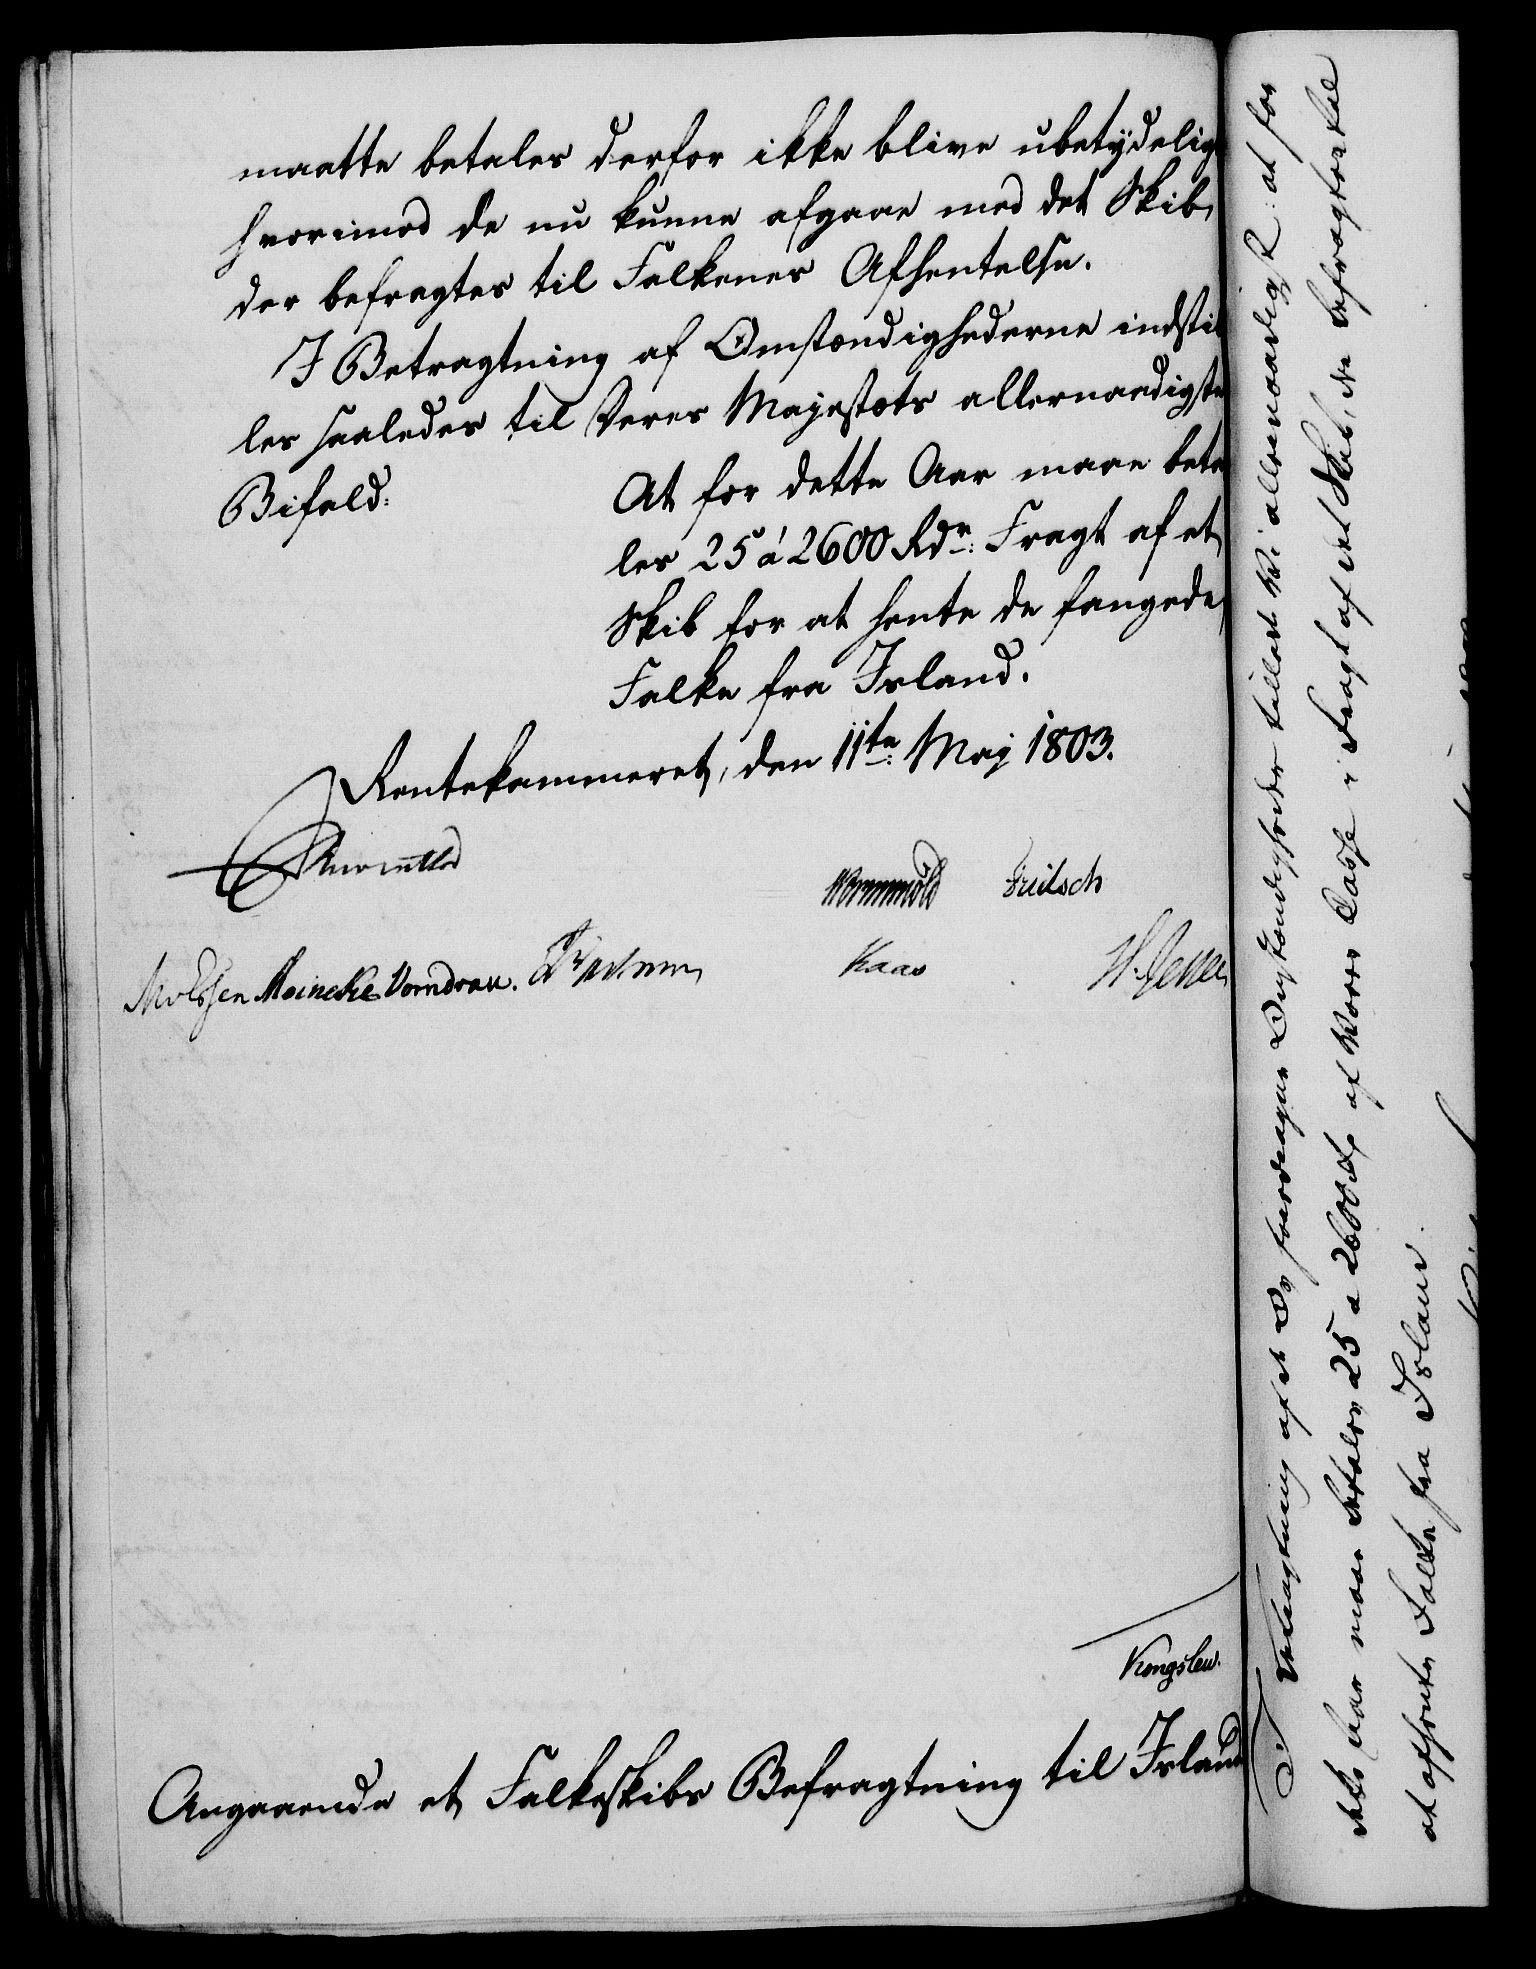 maatte betales derfor ikke blive ubetÿdelig
hvorimod de nu kunne afgaae med det Skib,
der befragtes til Falkenes Afhentelse.
I Betragtning af Omstændighederne indstil
les saaledes til Deres Majestæts allernaadigste
Bifald:
At for dette Aar maae beta
les 25 á 2600 Rdr: Fragt af et
Skib for at hente de fangede
Falke fra Island.
Rentekammeret, den 11te Maj 1803.
Reventlow
Wormskiold Fritsch
Meinecke Vorndran. Kaas
Kongslew.
Angaaende et Falkeskibs Befragtning til Island
I Betragtning af de Os foredragne Omstændigheder tillade Vi allernaadigst: at for
dette Aar maae betales 25 a 2600 af Vores Casse i Fragt af det Skib, der befragtes til
at afhente Falke fra Island.